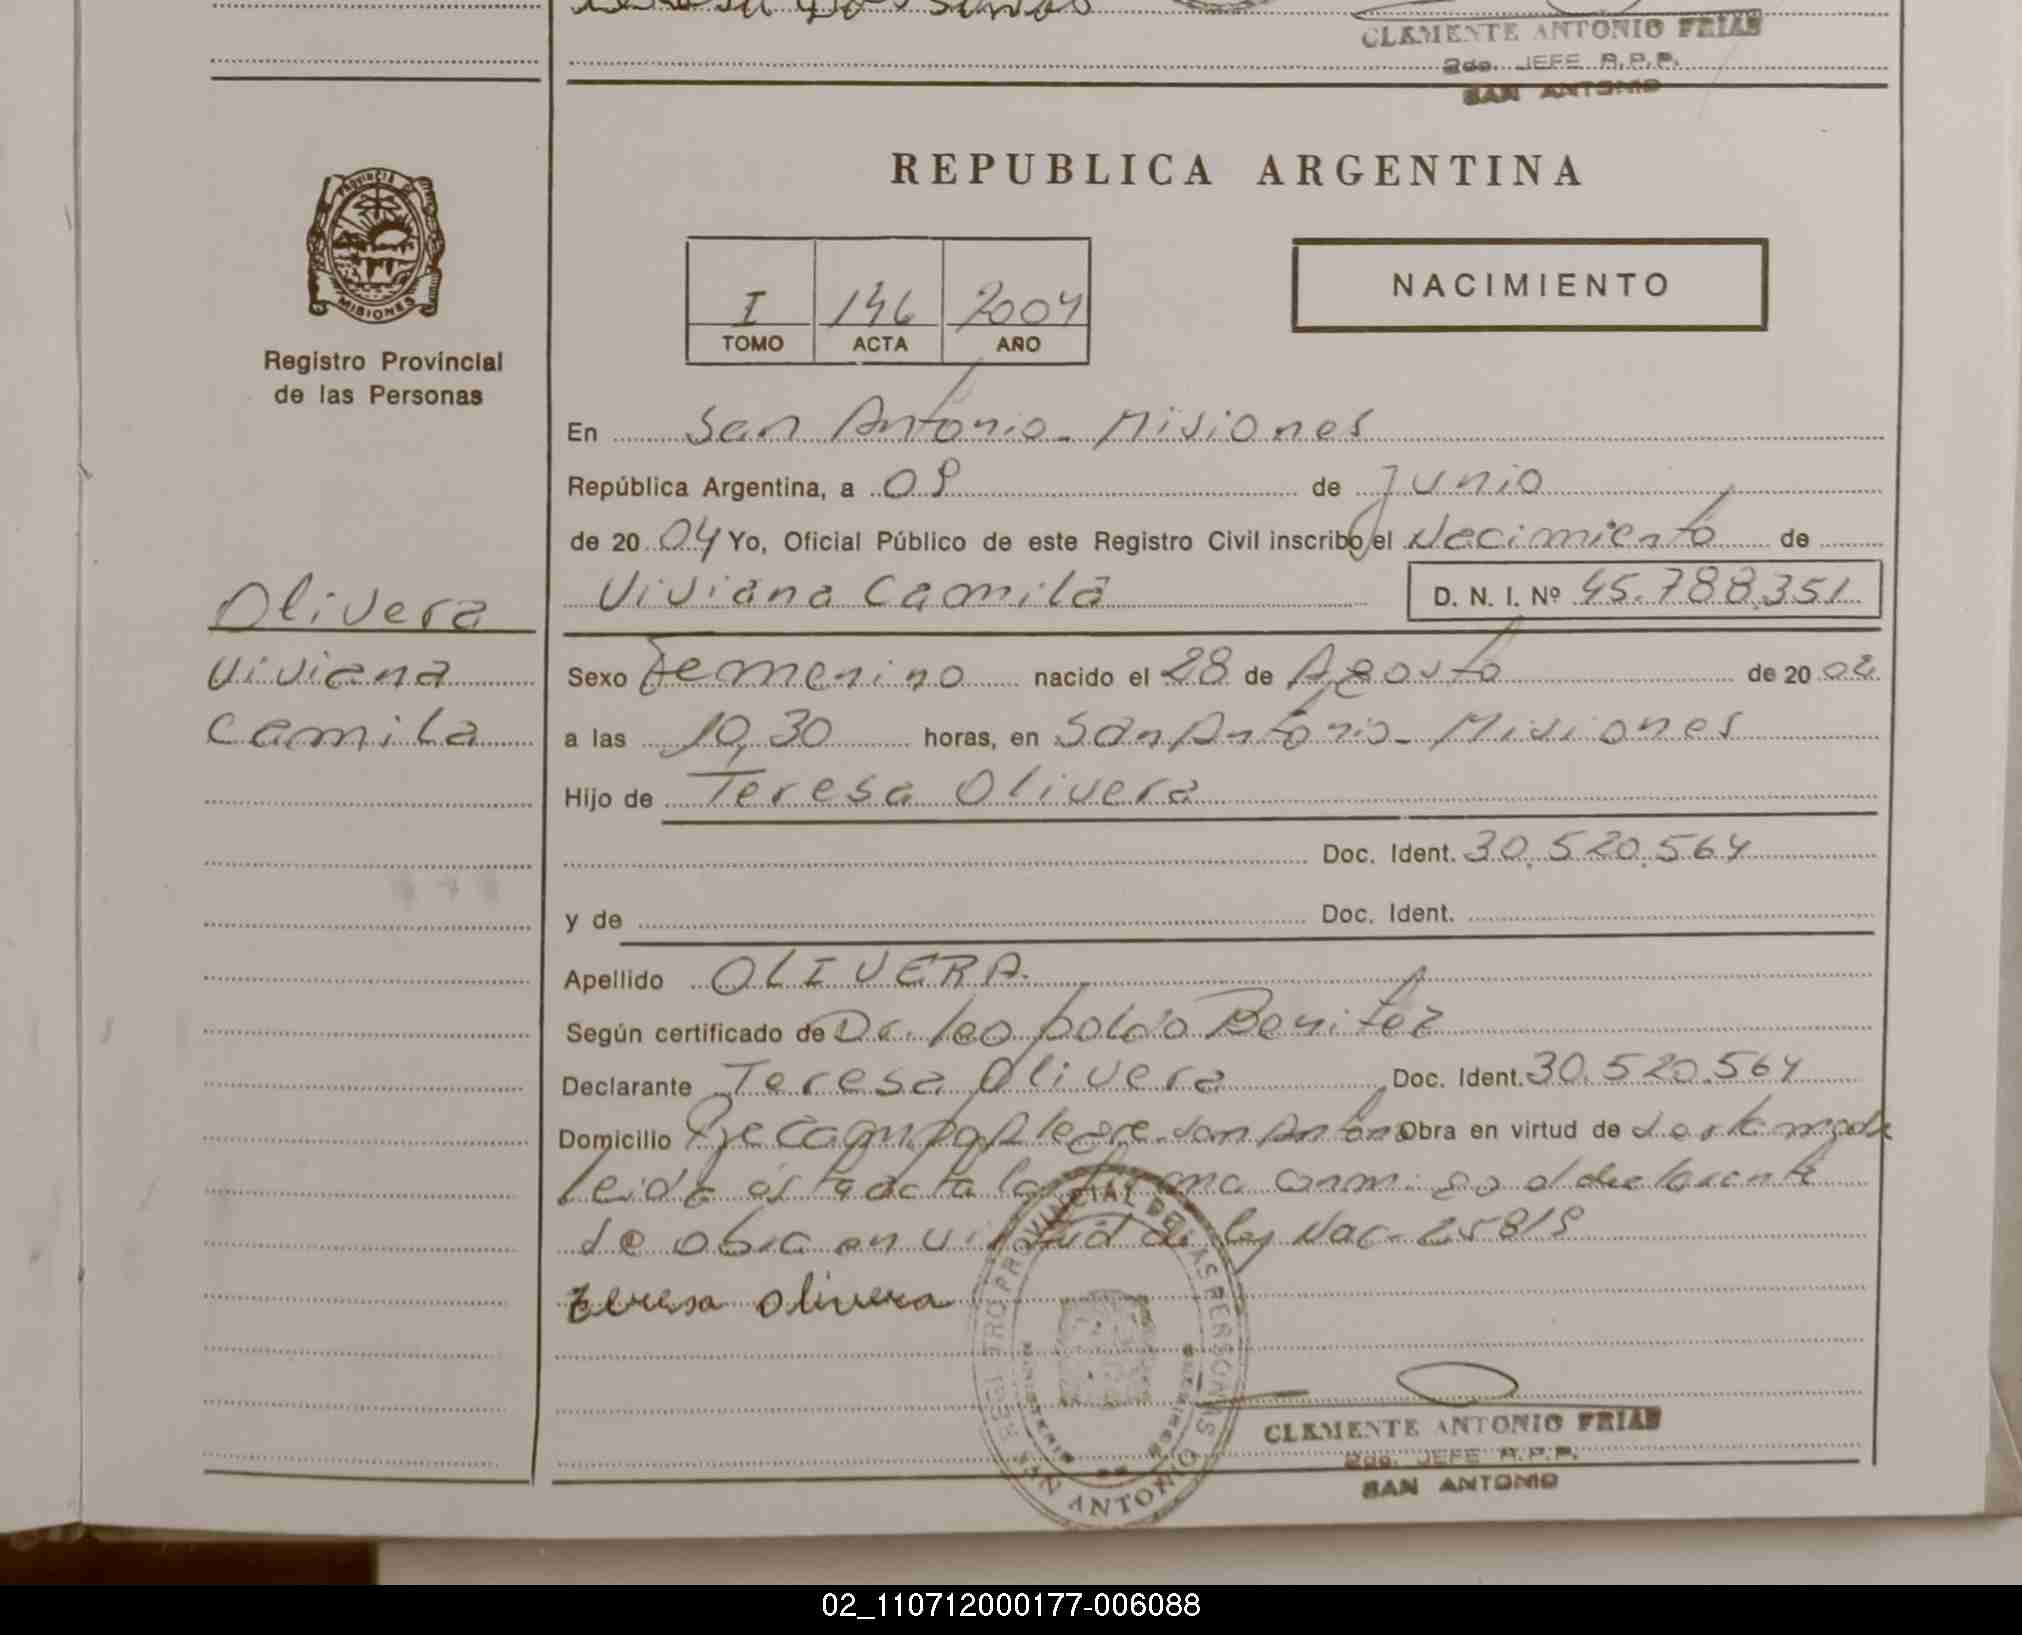 CLEMENTE ANTONIO FRIAS
2do. JEFE R.P.P.
SAN ANTONIO
PROVINCIA DE
MISIONES
Registro Provincial
de las Personas
REPUBLICA ARGENTINA
I 146 2004
TOMO ACTA AÑO
NACIMIENTO
En San Antonio - Misiones
República Argentina, a 09 de Junio
de 20 04 Yo, Oficial Público de este Registro Civil inscribo el Nacimiento de
Viviana Camila D. N. I. Nº 45.788.351
Olivera
Viviana
Camila
Sexo Femenino nacido el 28 de Agosto de 20 02
a las 10,30 horas, en San Antonio - Misiones
Hijo de Teresa Olivera
Doc. Ident. 30.520.564
y de Doc. Ident.
Apellido OLIVERA.
Según certificado de Dr. Leopoldo Benitez
Declarante Teresa Olivera Doc. Ident. 30.520.564
Domicilio Pje Campo Alegre - San Antonio Obra en virtud de
leida esta acta la firma conmigo el declarante
de obra en virtud de ley Nac. 25819
teresa olivera
REGISTRO PROVINCIAL DE LAS PERSONAS
SAN ANTONIO
CLEMENTE ANTONIO FRIAS
2do. JEFE R.P.P.
SAN ANTONIO
02_110712000177-006088